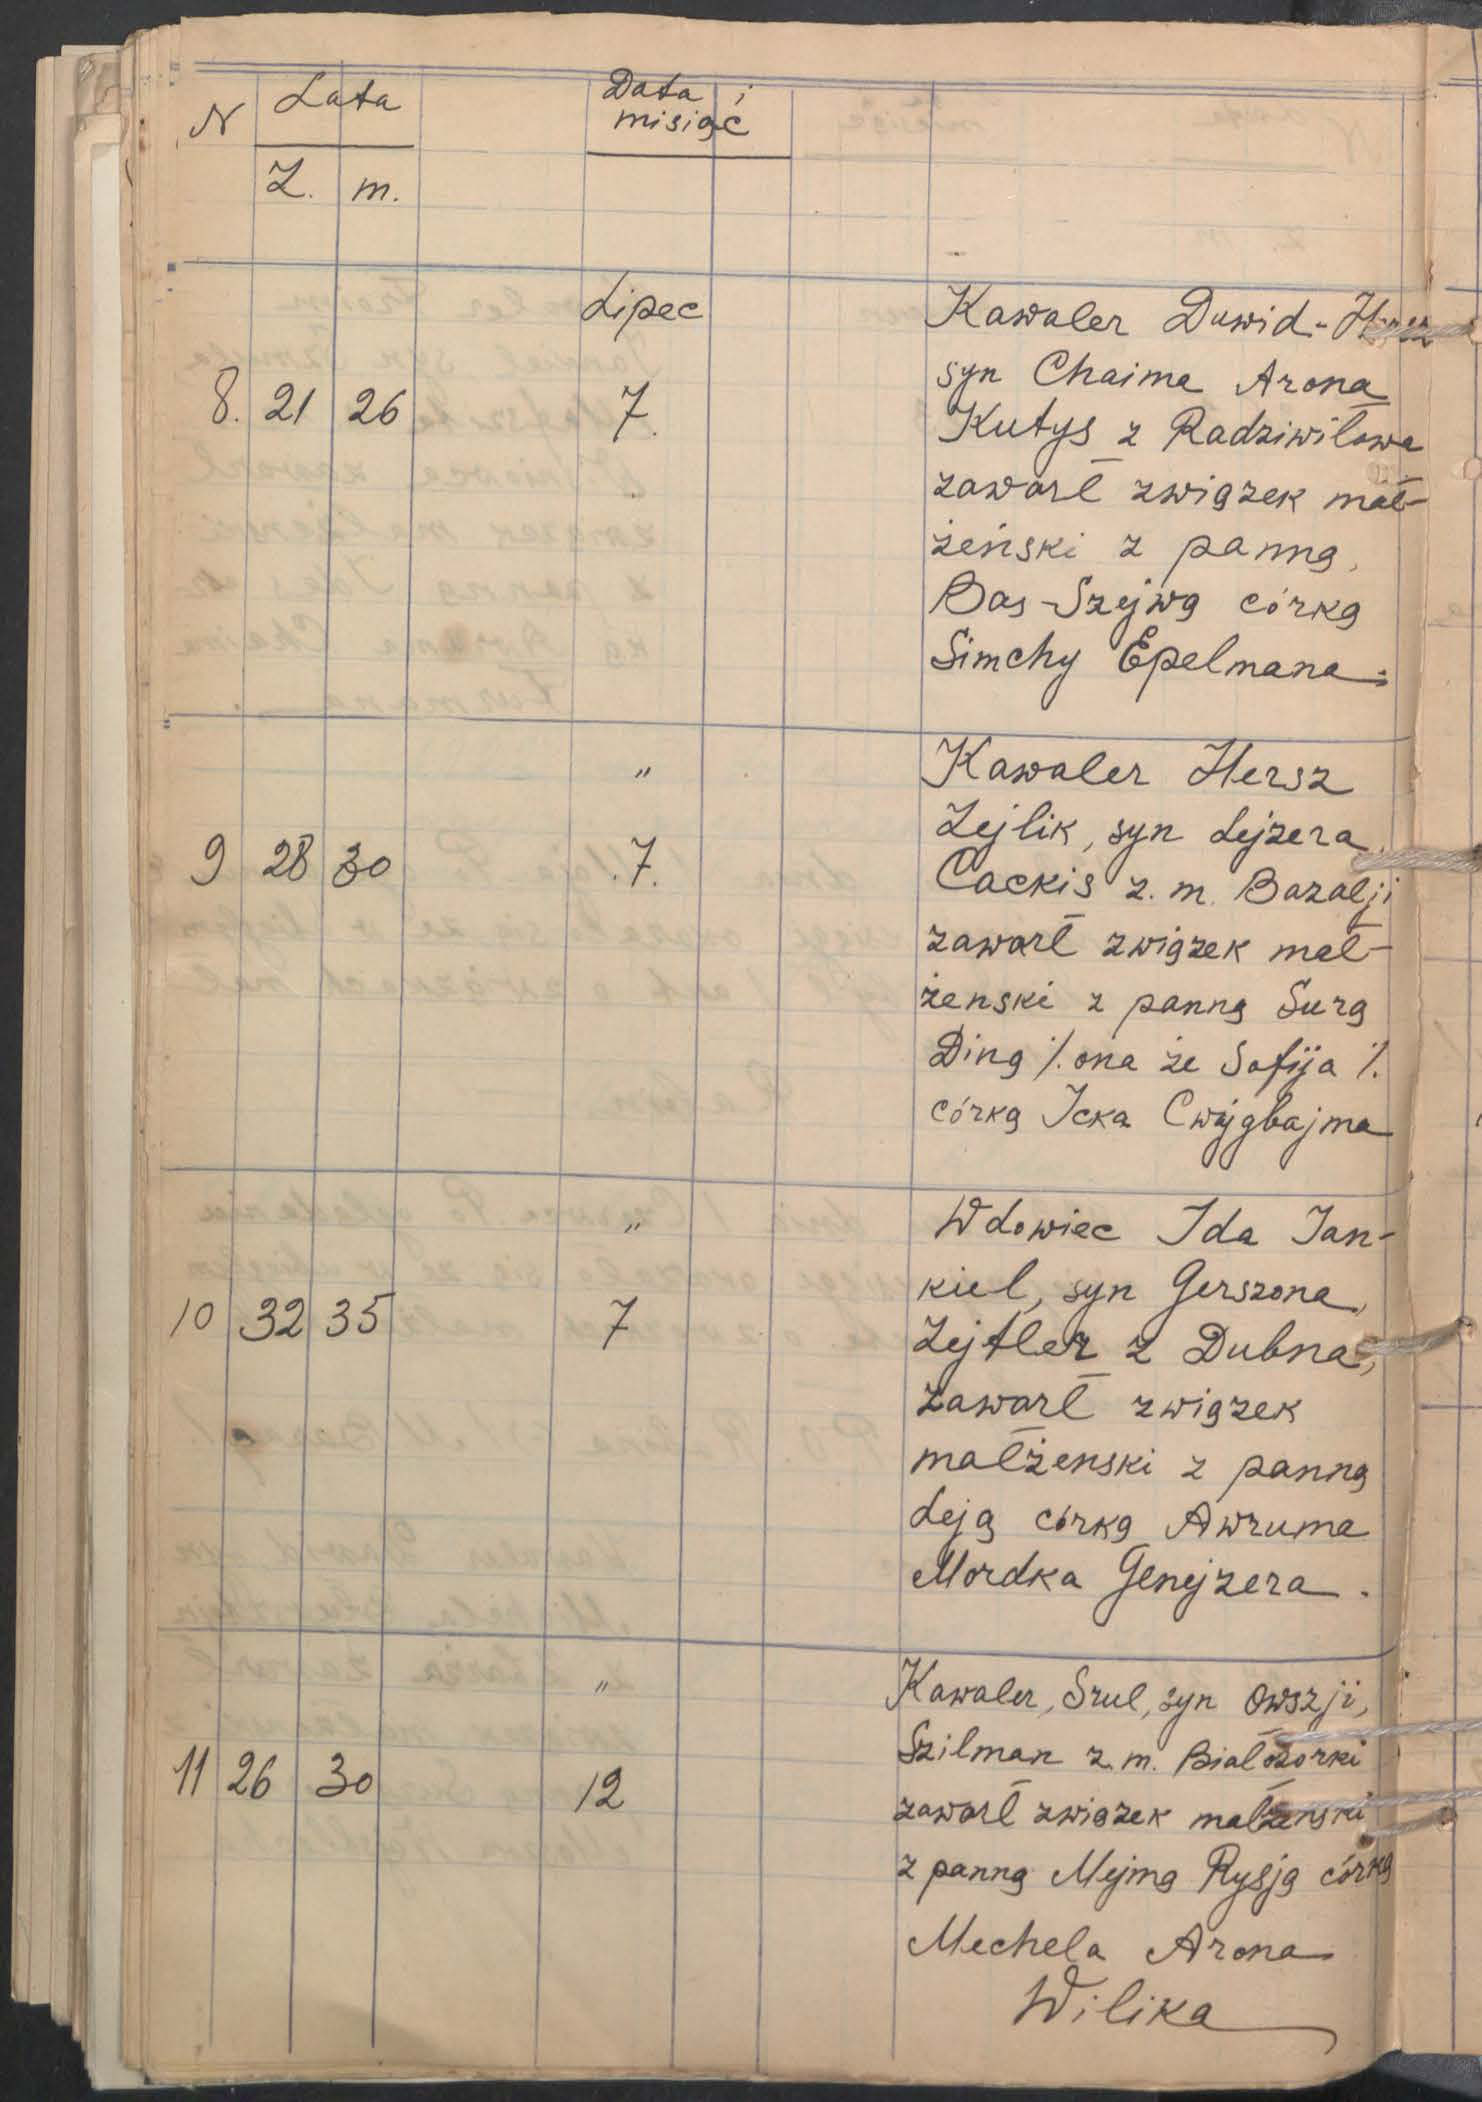 N Lata Data i
misiąc
Ż. m.
Lipec
8. 21 26 7.
Kawaler Duwid-Hersz
syn Chaima Arona
Kutys z Radziwiłowa
zawarł związek mał-
żeński z panną,
Bas-Szejwą córką
Simchy Epelmana.
"
9 28 30 .7.
Kawaler Hersz
Zejlik, syn Lejzera,
Cackis z. m. Bazalji
zawarł związek mał-
żenski z panną Surą
Diną /. ona że Sofija /.
córką Icka Cwygbajma
"
10 32 35 7
Wdowiec Ida Jan-
kiel, syn Gerszona,
Zejtler z Dubna,
zawarł związek
małżenski z panną
Leją córką Awruma
Mordka Genejzera.
"
11 26 30 12
Kawaler, Srul, syn Owszji,
Szilman z. m. Białozorki
zawarł związek małżenski
z panną Mejmą Rysją córką
Mechela Arona
Wilika